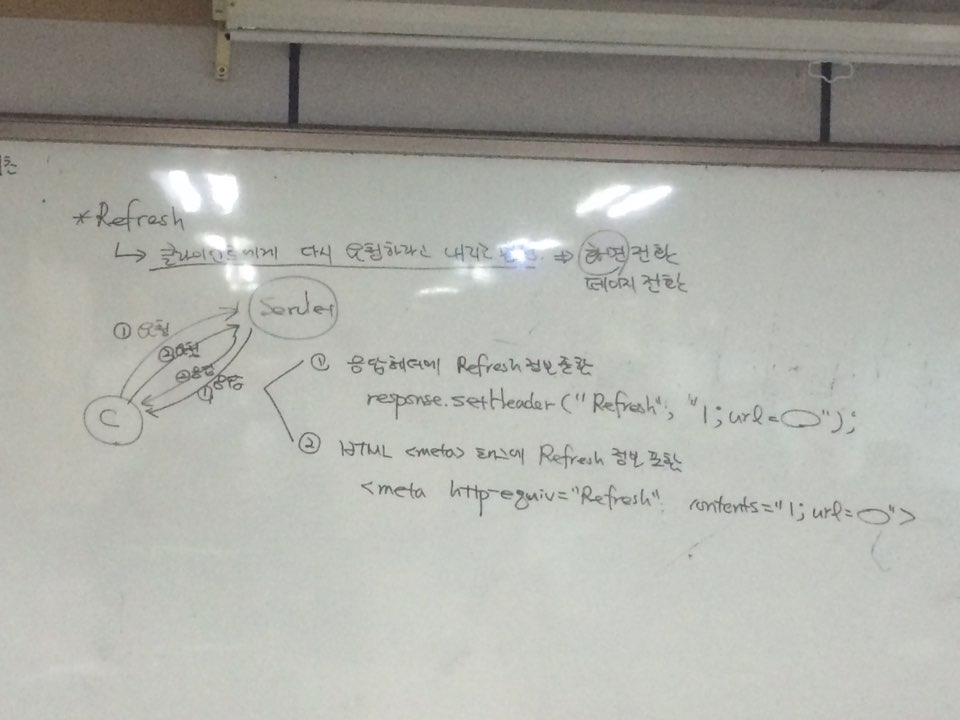 *Refresh
↳ 클라이언트에게 다시 요청하라고 내리는 ⇒ 화면전환
페이지 전환
Servlet
① 요청
② 요청
② 응답
① 응답
C
① 응답헤더에 Refresh 정보 포함
response.setHeader("Refresh", "1;url=○");
② HTML <meta> 태그에 Refresh 정보 포함
<meta http-equiv="Refresh" contents="1;url=○">